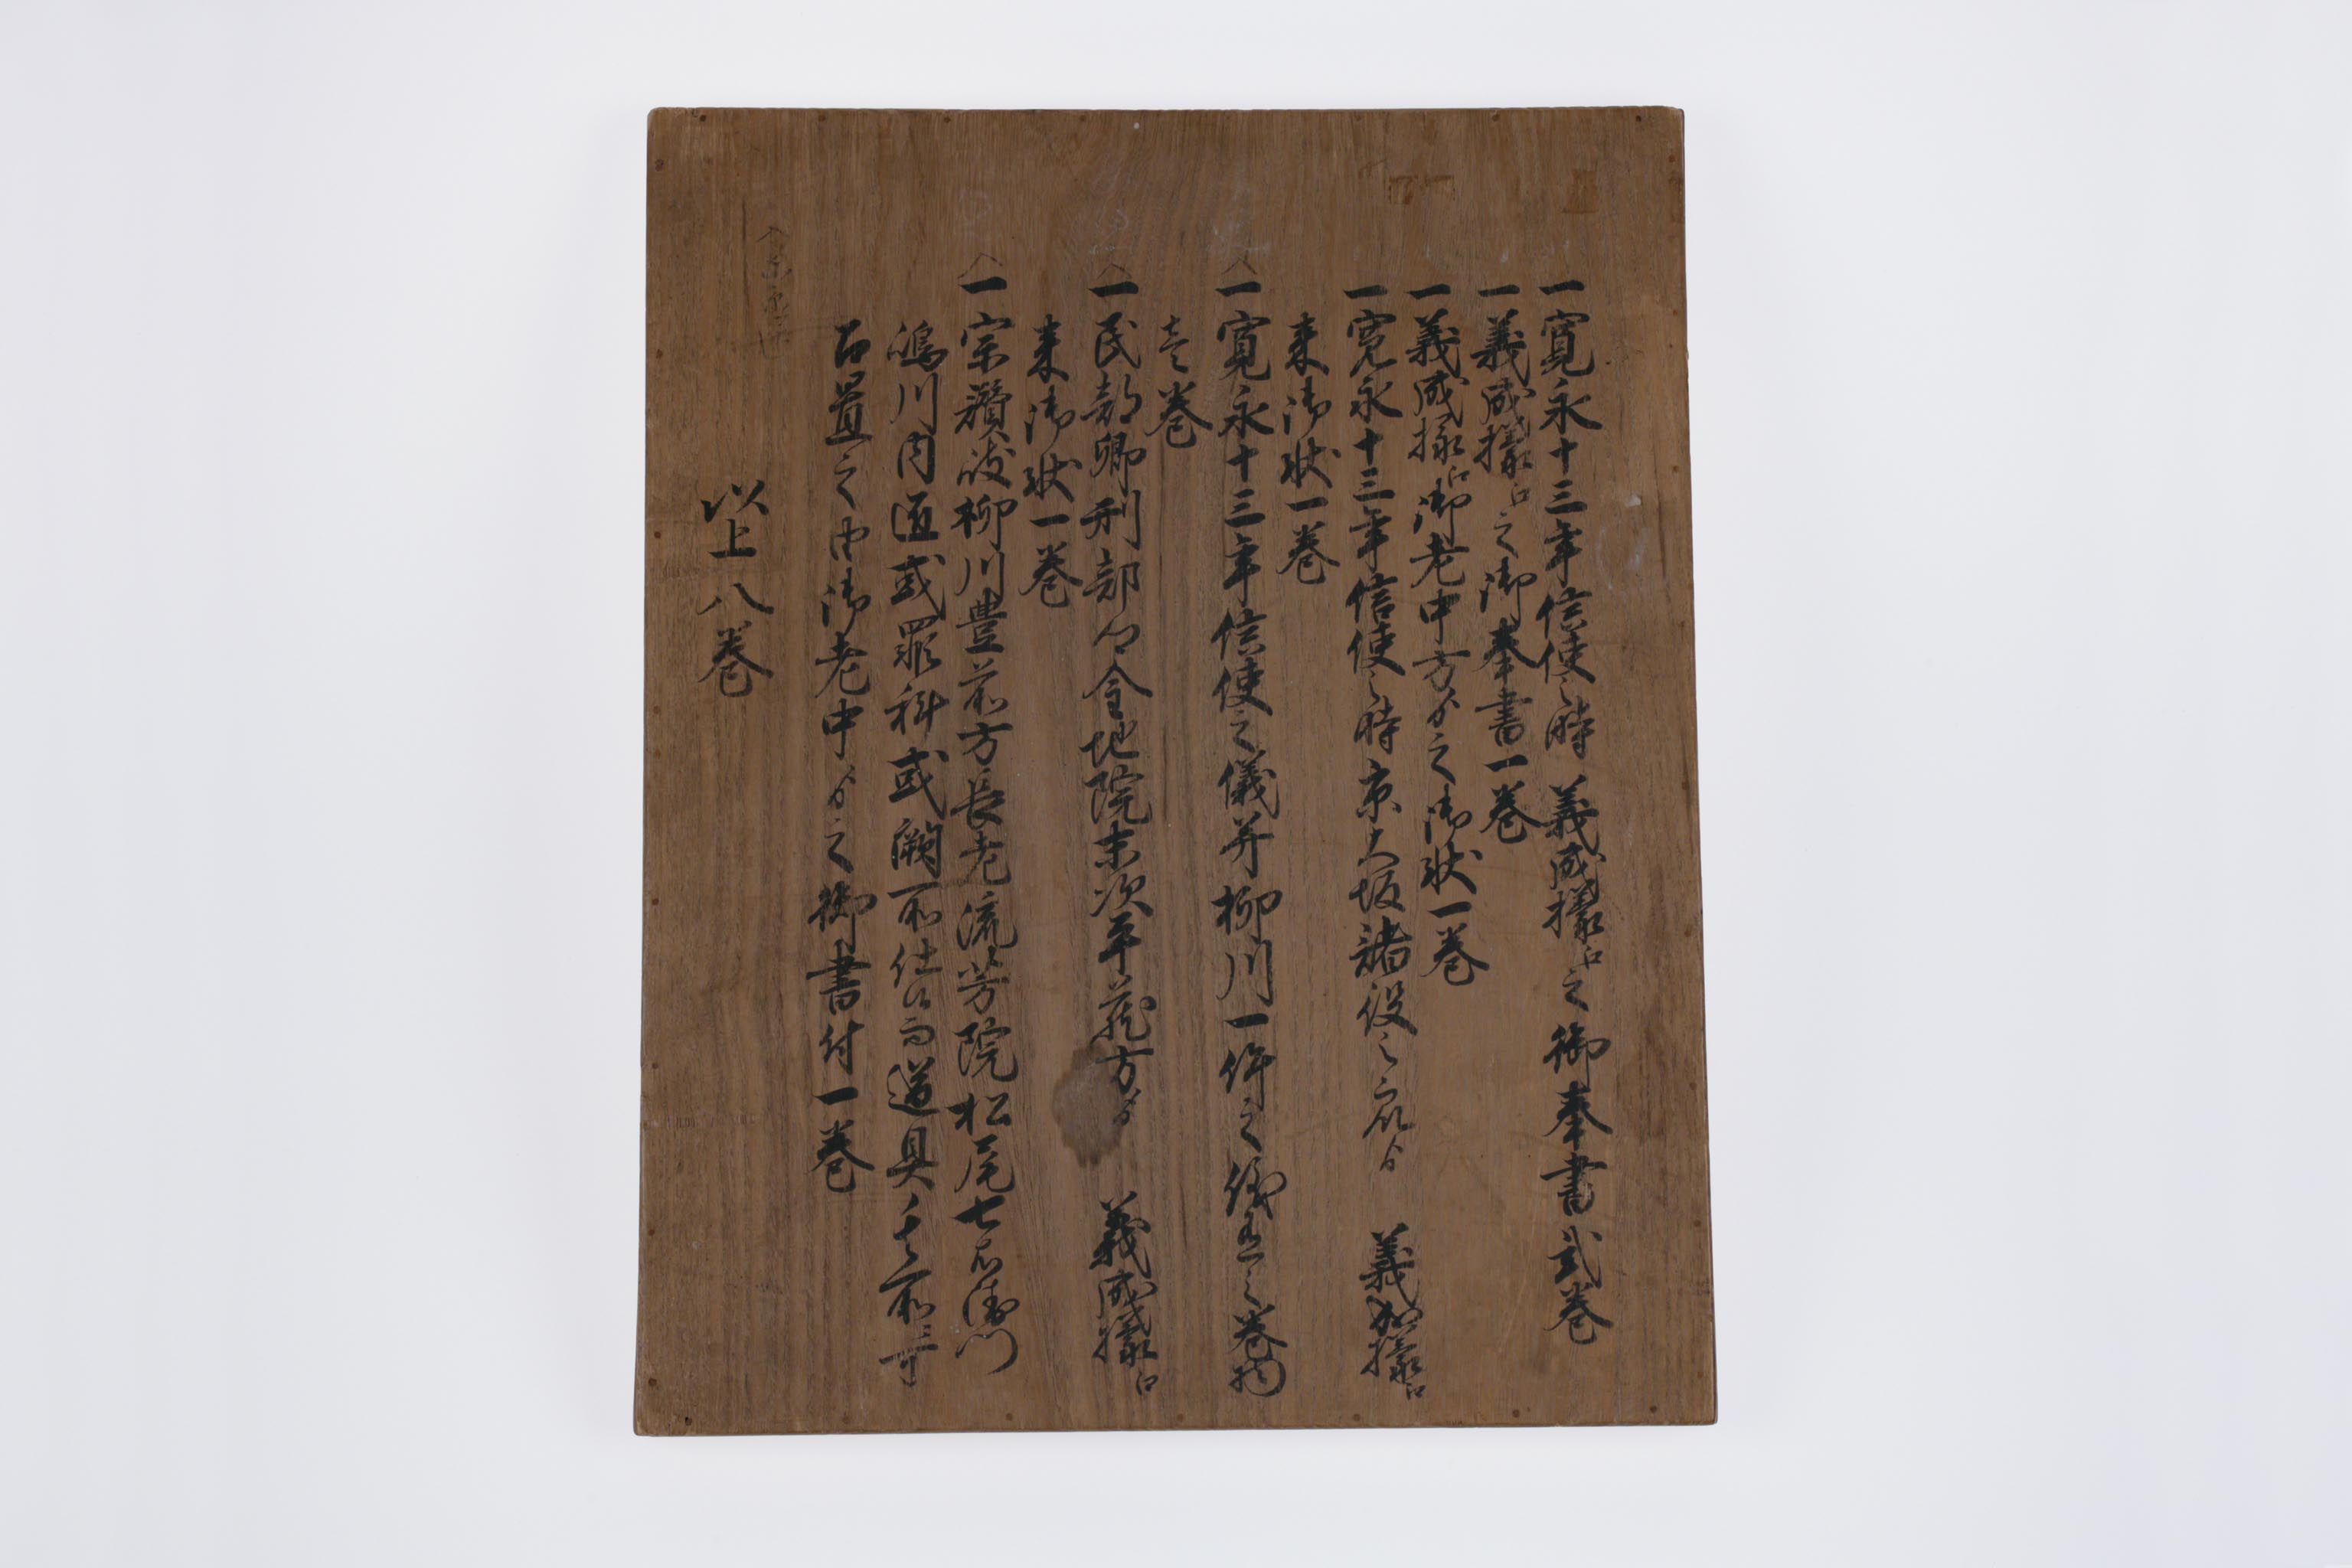 一寛永十三年信使之時 義成様江之御奉書弐巻
一義成様江之御奉書一巻
一義成様江御老中方ゟ之御状一巻
一寛永十三年信使之時京大坂諸役之衆ゟ 義成様江
来御状一巻
一寛永十三年信使之儀并柳川一件之儀共之巻物
壱巻
一民部卿刑部卿金地院末次平蔵方ゟ 義成様江
来御状一巻
一宗讃岐柳川豊前方長老流芳院松尾七右衛門
嶋川内匠或罪科或闕所仕候而道具
召置之由御老中ゟ之御書付一巻
以上八巻